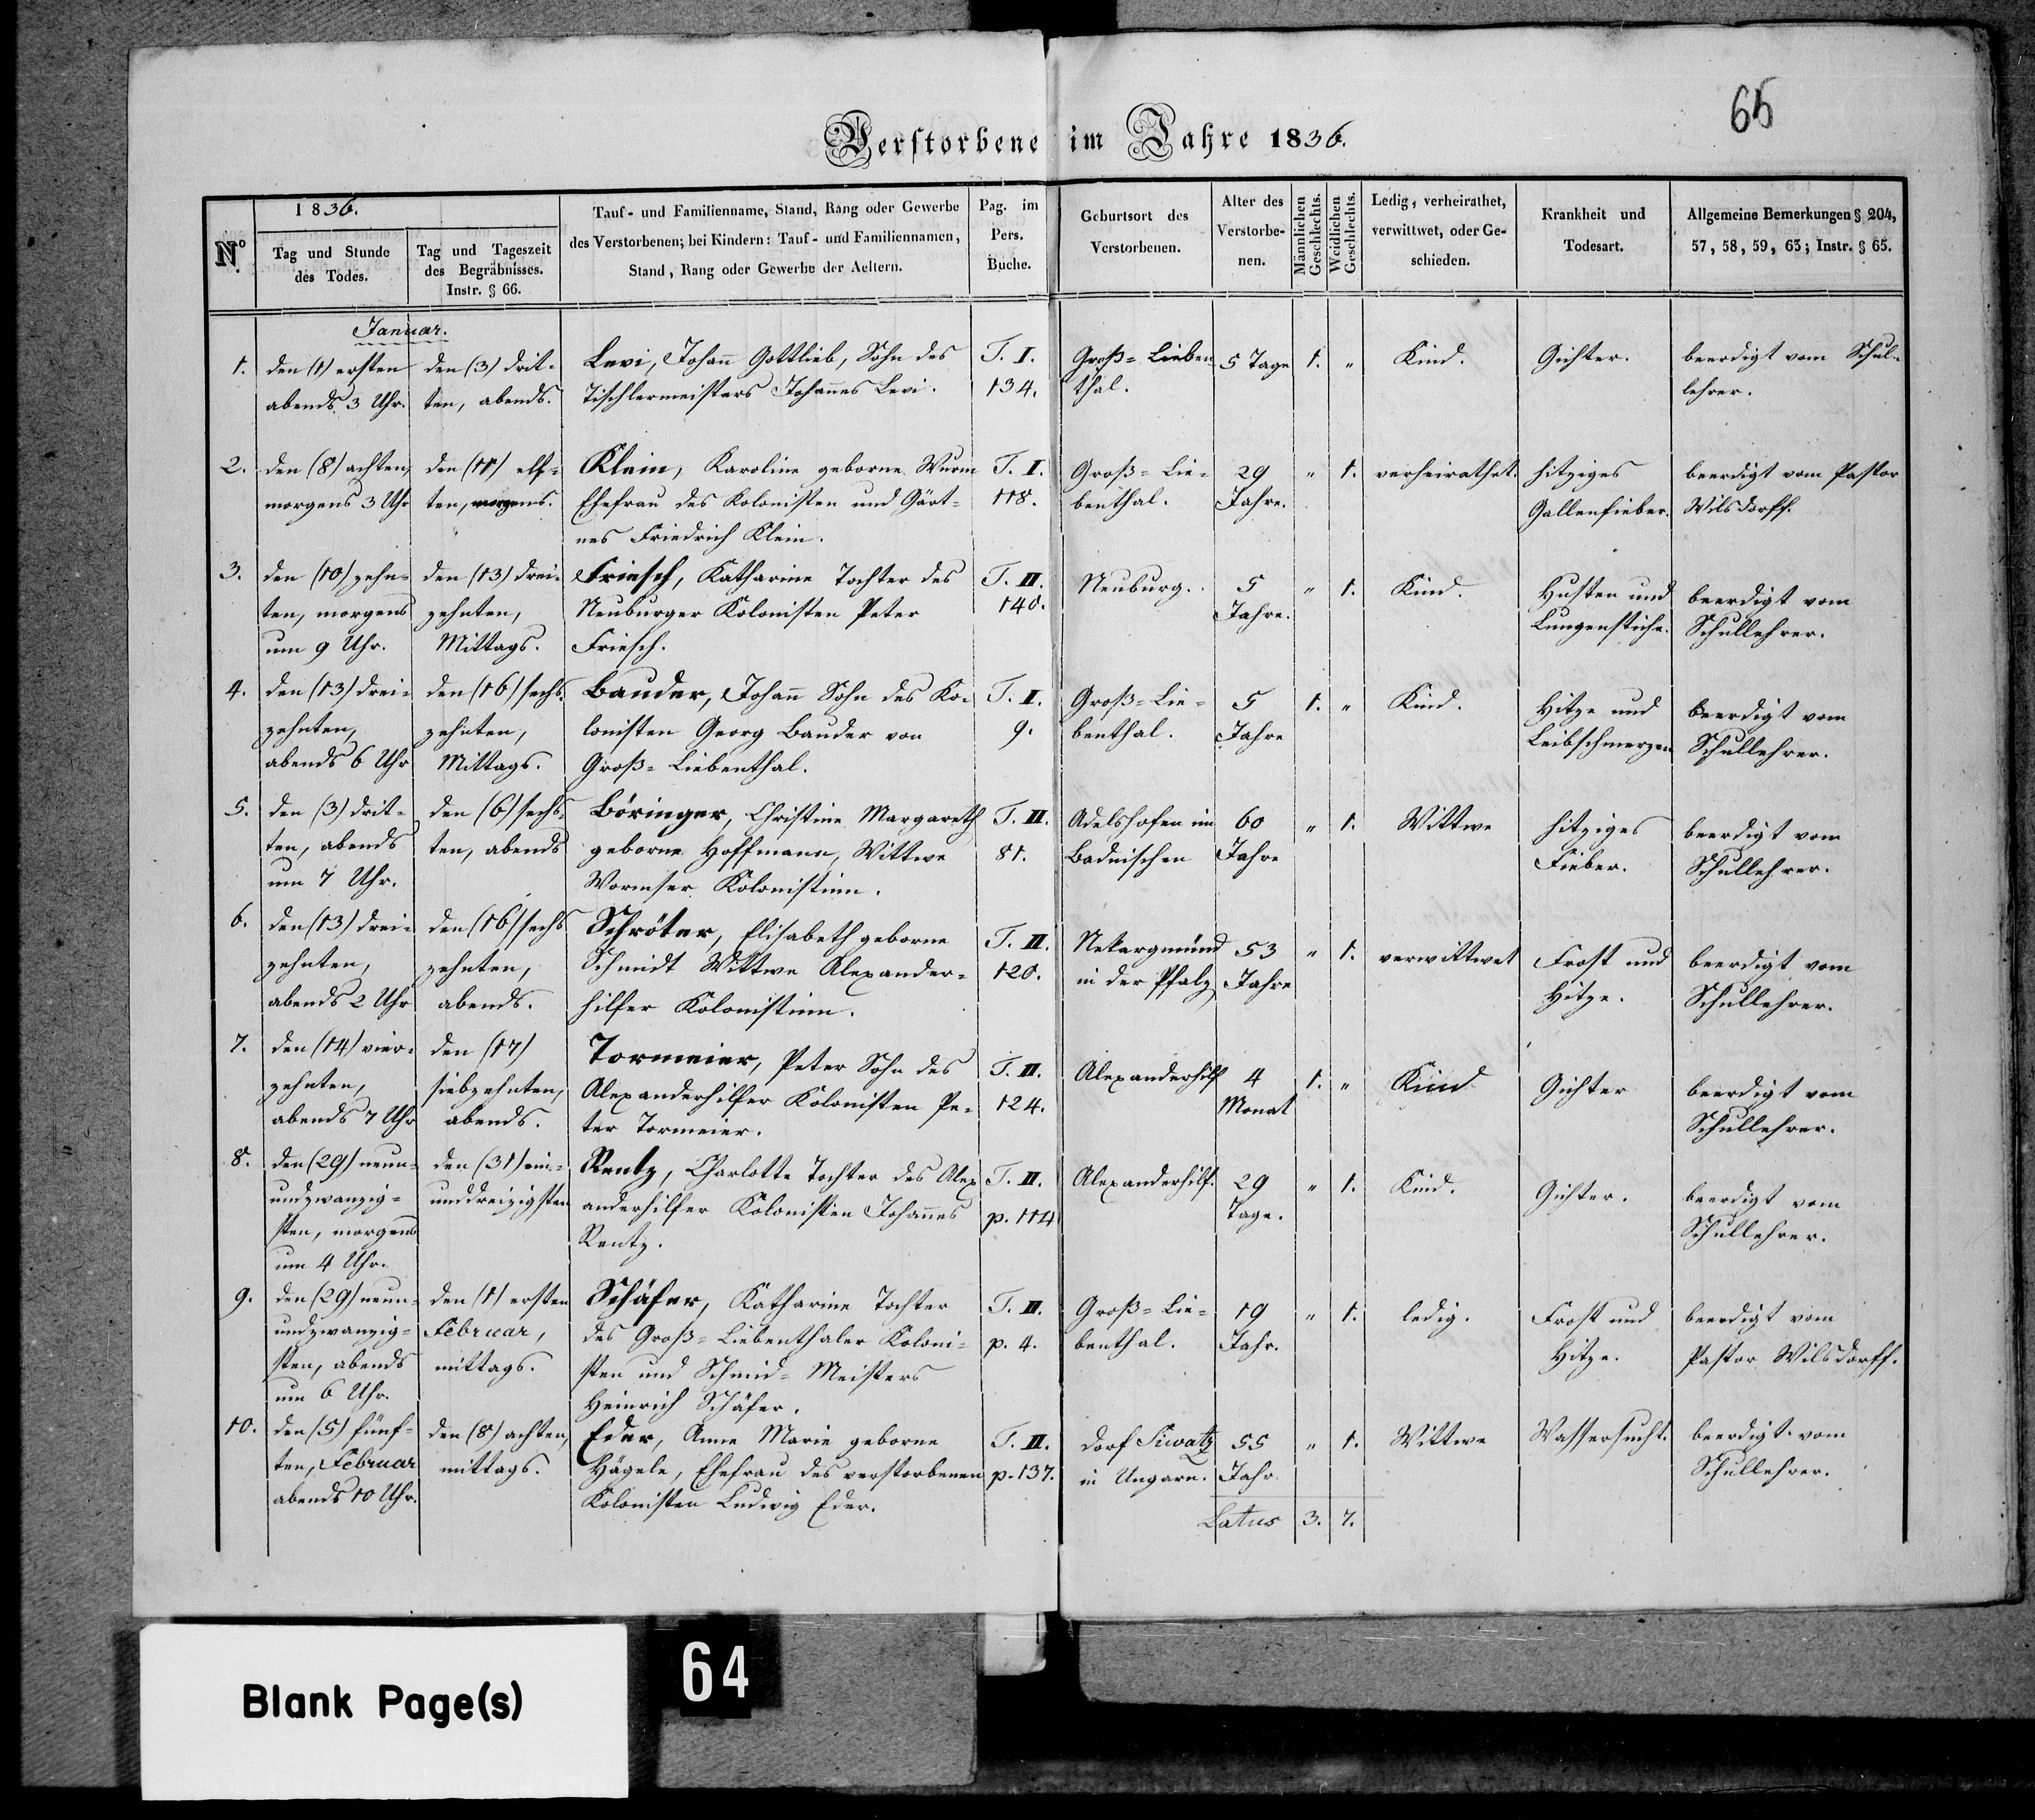 65
Verstorbene im Jahre 1836.
Nº.
1836.
Tag und Stunde
des Todes.
Tag und Tageszeit
des Begräbnisses.
Instr. § 66.
Tauf- und Familienname, Stand, Rang oder Gewerbe
des Verstorbenen; bei Kindern: Tauf- und Familiennamen,
Stand, Rang oder Gewerbe der Aeltern.
Pag. im
Pers.
Buche.
Geburtsort des
Verstorbenen.
Alter des
Verstorbe-
nen.
Männlichen
Geschlechts.
Weiblichen
Geschlechts.
Ledig, verheirathet,
verwittwet, oder Ge-
schieden.
Krankheit und
Todesart.
Allgemeine Bemerkungen § 204,
57, 58, 59, 63; Instr. § 65.
Januar.
1. den (1) ersten den (3) drit- Levi, Johann Gottlieb, Sohn des T. I. Groß-Lieben- 5 Tage 1. " Kind. Gichter. beerdigt vom Schul-
abends 3 Uhr. ten, abends. Tischlermeisters Johannes Levi. 134. thal. lehrer.
2. den (8) achten, den (11) elf- Klein, Karoline geborne Wurm T. I. Groß-Lie- 29 " 1. verheirathet. hitziges beerdigt vom Pastor
morgens 3 Uhr ten, morgens. Ehefrau des Kolonisten und Gärt- 118. benthal. Jahre. Gallenfieber. Wilsdorff.
ners Friedrich Klein.
3. den (10) zehn- den (13) drei- Friesch, Katharine Tochter des T. II. Neuburg. 5 " 1. Kind. Husten und beerdigt vom
ten, morgens zehnten, Neuburger Kolonisten Peter 140. Jahre. Lungenstiche. Schullehrer.
um 9 Uhr. Mittags. Friesch.
4. den (13) drei- den (16) sechs- Bauder, Johann Sohn des Ko- T. I. Groß-Lie- 5 1. " Kind. Hitze und beerdigt vom
zehnten, zehnten, lonisten Georg Bauder von 9. benthal. Jahre Leibschmerzen Schullehrer.
abends 6 Uhr Mittags. Groß-Liebenthal.
5. den (3) drit- den (6) sechs- Böringer, Christine Margareth T. II. Adelshofen im 60 " 1. Wittwe hitziges beerdigt vom
ten, abends ten, abends geborne Hoffmann, Wittwe 81. Badnischen Jahre Fieber. Schullehrer.
um 7 Uhr. Wormser Kolonistinn.
6. den (13) drei- den (16) sechs Schröter, Elisabeth geborne T. II. Nekargmünd 53 " 1. verwittwet Frost und beerdigt vom
zehnten, zehnten, Schmidt Wittwe Alexander- 120. in der Pfalz Jahre Hitze. Schullehrer.
abends 2 Uhr abends. hilfer Kolonistinn.
7. den (14) vier- den (17) Tormeier, Peter Sohn des T. II. Alexanderhilf 4 1. " Kind Gichter beerdigt vom
zehnten, siebzehnten, Alexanderhilfer Kolonisten Pe- 124. Monat Schullehrer.
abends 7 Uhr abends. ter Tormeier.
8. den (29) neun- den (31) ein- Rentz, Charlotte Tochter des Alex T. II. Alexanderhilf. 29 " 1. Kind. Gichter. beerdigt vom
undzwanzig- unddreizigsten anderhilfer Kolonisten Johannes p. 114 Tage. Schullehrer.
sten, morgens Rentz.
um 4 Uhr.
9. den (29) neun- den (1) ersten Schäfer, Katharine Tochter T. II. Groß-Lie- 19 " 1. ledig. Frost und beerdigt vom
undzwanzig- Februar, des Groß-Liebenthaler Koloni- p. 4. benthal. Jahr. Hitze. Pastor Wilsdorff.
sten, abends mittags. sten und Schmid-Meisters
um 6 Uhr. Heinrich Schäfer.
10. den (5) fünf- den (8) achten, Eder, Anne Marie geborne T. II. Dorf Siwatz 55 " 1. Wittwe Wassersucht. beerdigt vom
ten, Februar mittags. Hägele, Ehefrau des verstorbenen p. 137. in Ungarn. Jahr. Schullehrer.
abends 10 Uhr. Kolonisten Ludwig Eder.
Latus 3. 7.
64
Blank Page(s)